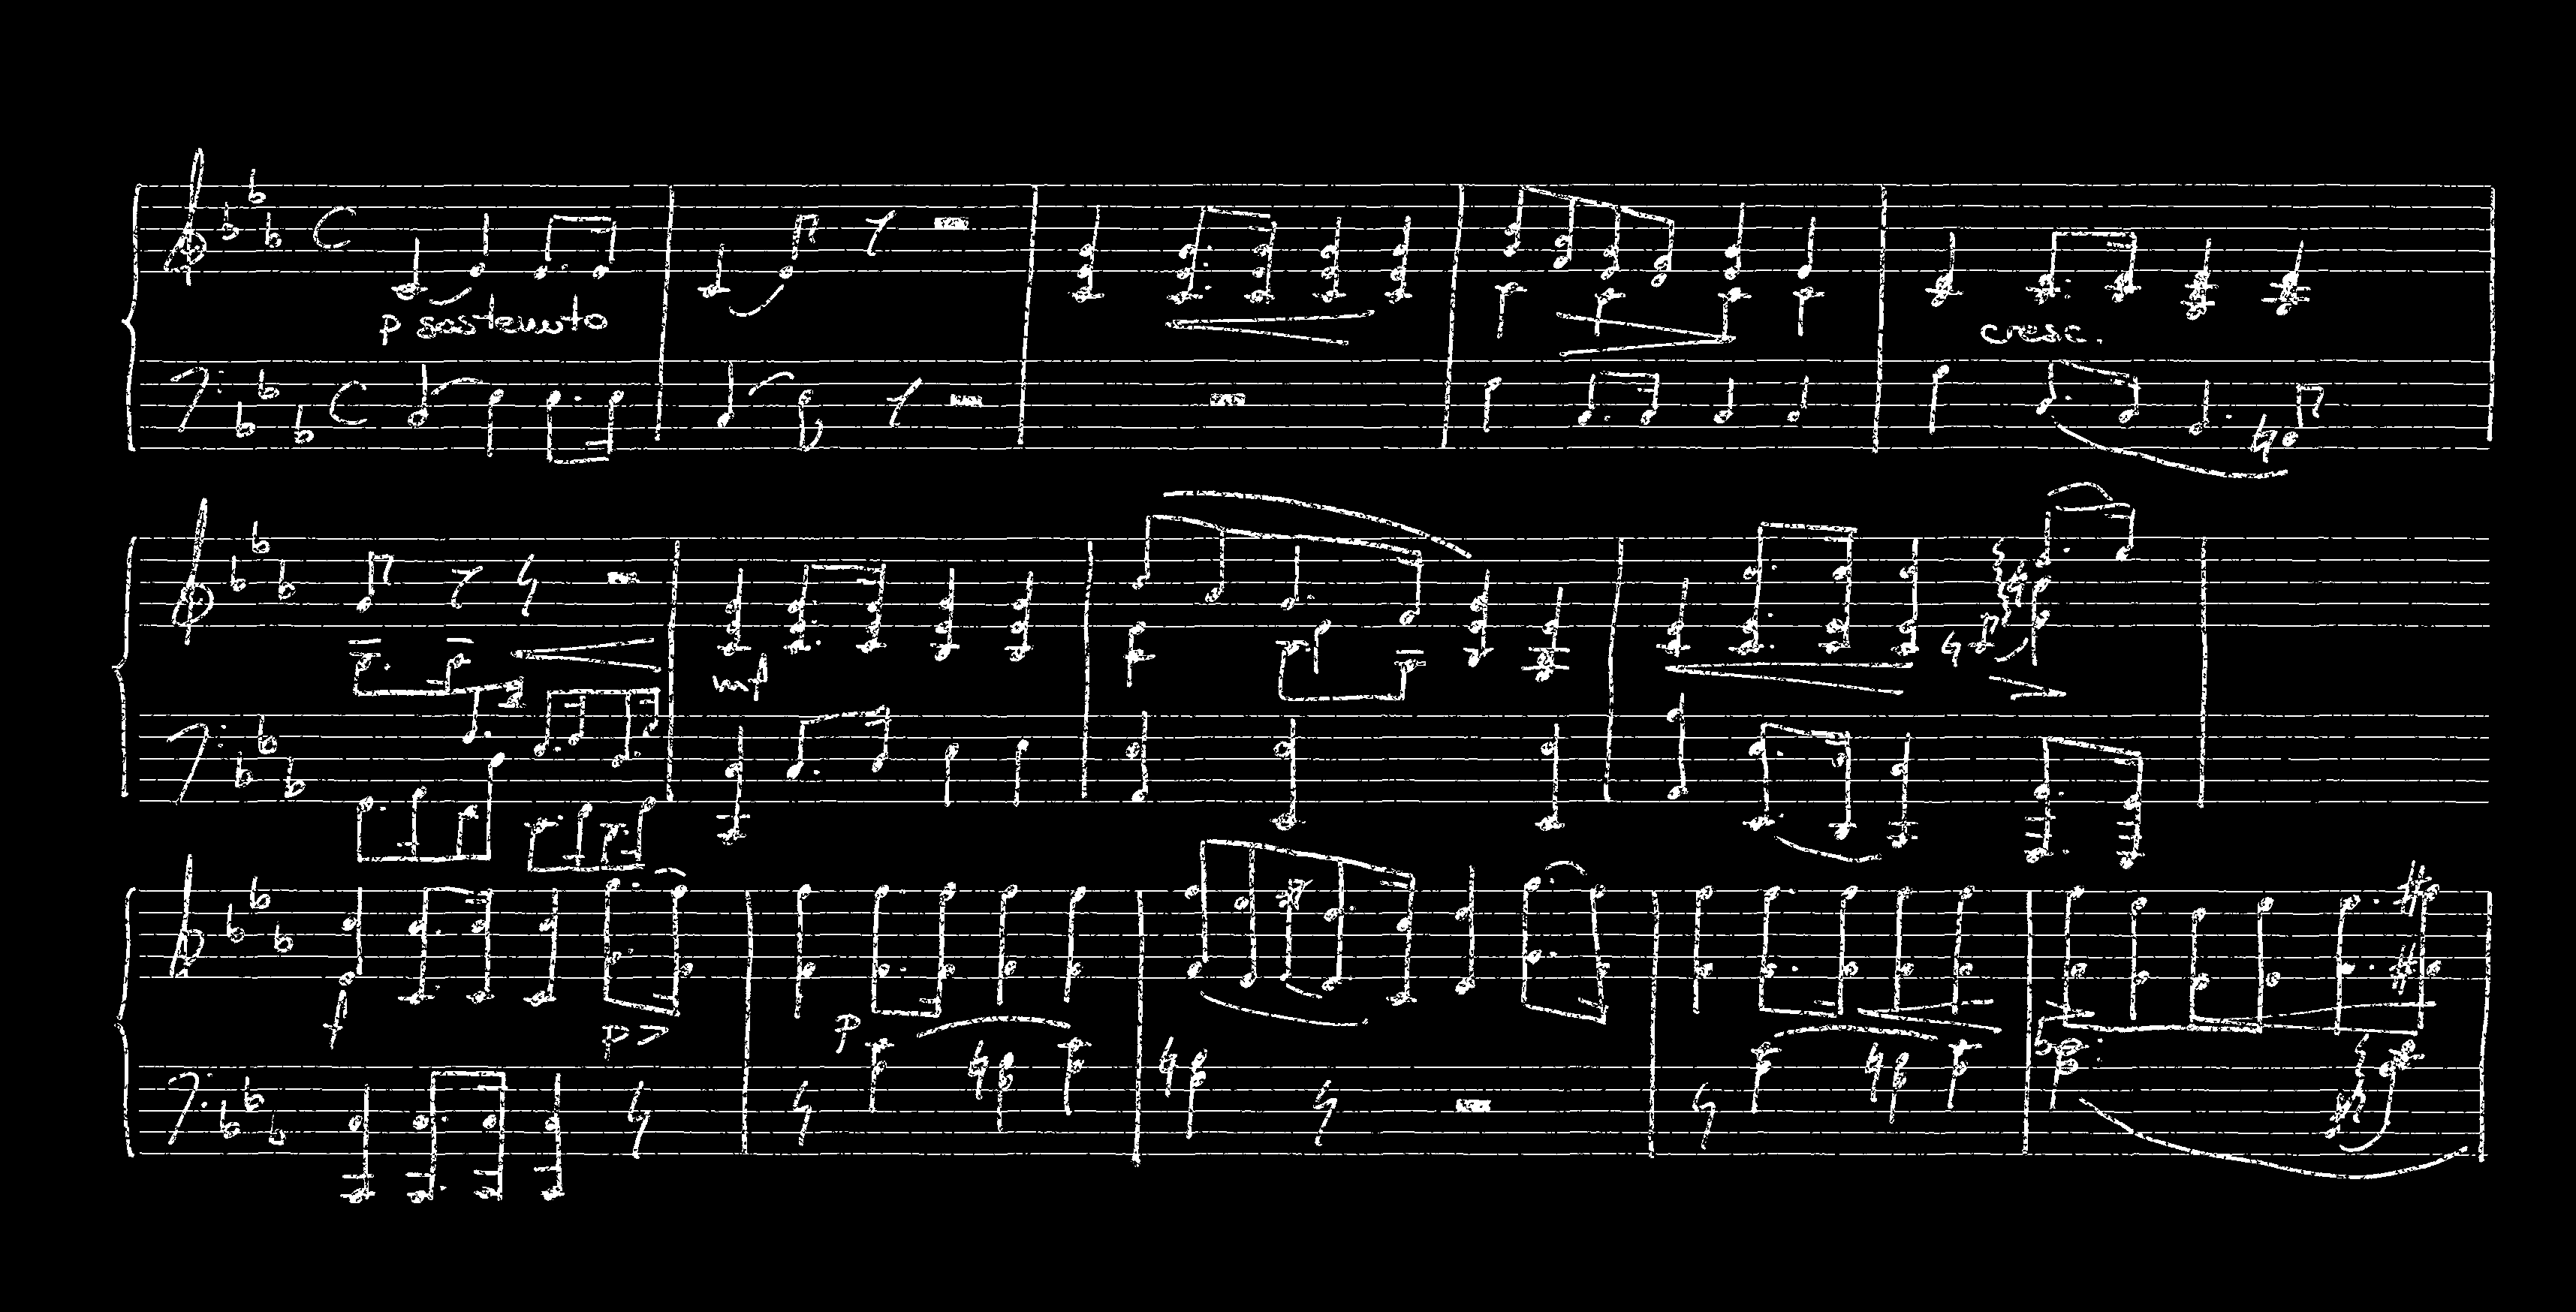 p sostenuto
cresc.
mf
f
p >
p